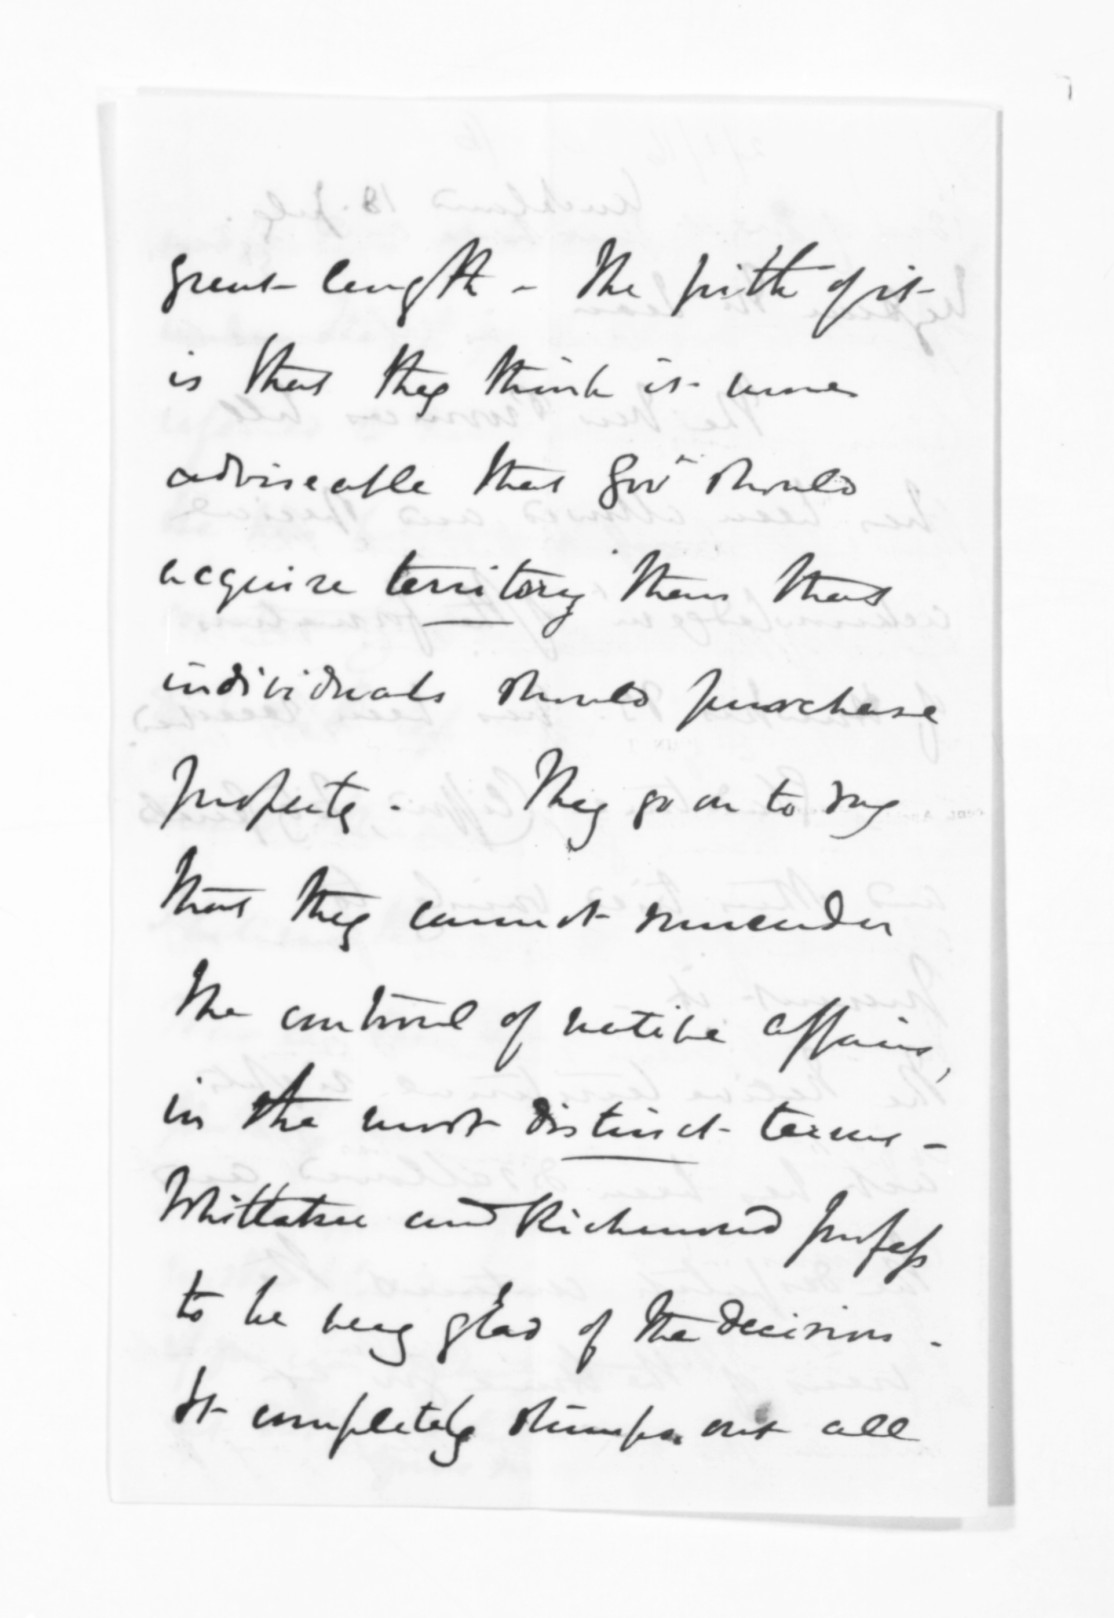 great length - The pith of it
is that they think it more
adviseable that Govt should
acquire territory than that
individuals should purchase
property - They go on to say
that they cannot surrender
the control of native affairs,
in the most distinct terms -
Whittaker and Richmond profess
to be very glad of the decision -
It completely stumps out all